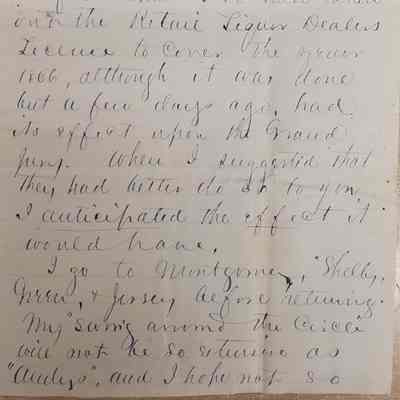 out the Retail Liquor Dealers
Licence to cover the year
1866, although it was done
but a few days ago, had
its effect upon the Grand
Jury. When I suggested that
they had better do so to you,
I anticipated the effect it
would have.
I go to Montgomery, Shelby,
Green, & Jersey before returning.
My "swing around the Circle
will not be so extensive as
"Andys", and I hope not so